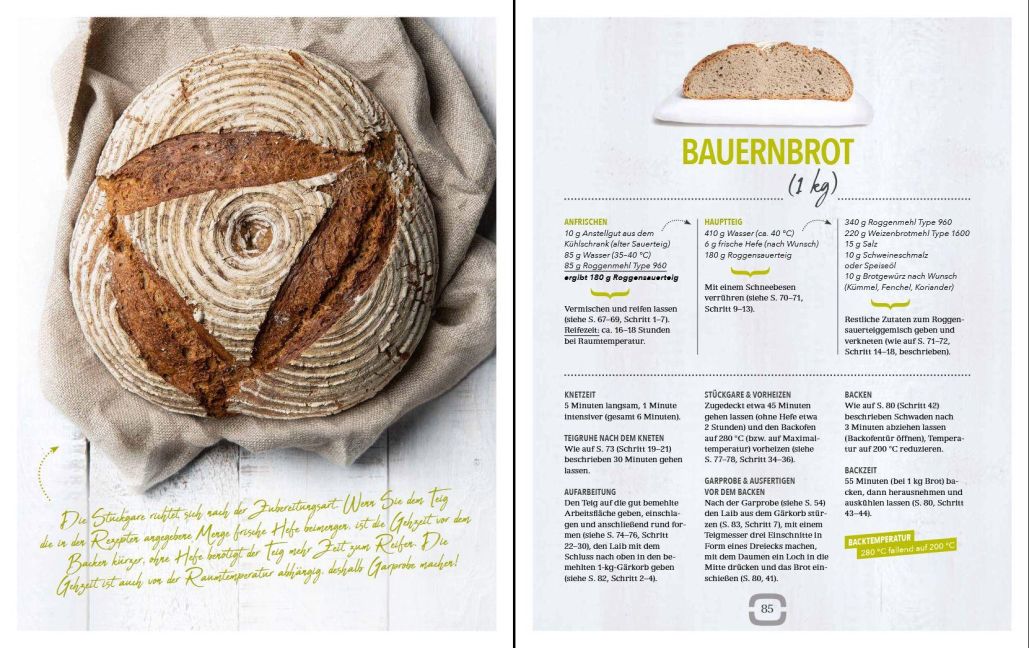 Die Stückgare richtet sich nach der Zubereitungsart. Wenn Sie dem Teig
die in den Rezepten angegebene Menge frische Hefe beimengen, ist die Gehzeit vor dem
Backen kürzer, ohne Hefe benötigt der Teig mehr Zeit zum Reifen. Die
Gehzeit ist auch von der Raumtemperatur abhängig, deshalb Garprobe machen!
BAUERNBROT
(1 kg)
ANFRISCHEN
10 g Anstellgut aus dem
Kühlschrank (alter Sauerteig)
85 g Wasser (35–40 °C)
85 g Roggenmehl Type 960
ergibt 180 g Roggensauerteig
Vermischen und reifen lassen
(siehe S. 67–69, Schritt 1–7).
Reifezeit: ca. 16–18 Stunden
bei Raumtemperatur.
HAUPTTEIG
410 g Wasser (ca. 40 °C)
6 g frische Hefe (nach Wunsch)
180 g Roggensauerteig
Mit einem Schneebesen
verrühren (siehe S. 70–71,
Schritt 9–13).
340 g Roggenmehl Type 960
220 g Weizenbrotmehl Type 1600
15 g Salz
10 g Schweineschmalz
oder Speiseöl
10 g Brotgewürz nach Wunsch
(Kümmel, Fenchel, Koriander)
Restliche Zutaten zum Roggen-
sauerteiggemisch geben und
verkneten (wie auf S. 71–72,
Schritt 14–18, beschrieben).
KNETZEIT
5 Minuten langsam, 1 Minute
intensiver (gesamt 6 Minuten).
TEIGRUHE NACH DEM KNETEN
Wie auf S. 73 (Schritt 19–21)
beschrieben 30 Minuten gehen
lassen.
AUFARBEITUNG
Den Teig auf die gut bemehlte
Arbeitsfläche geben, einschla-
gen und anschließend rund for-
men (siehe S. 74–76, Schritt
22–30), den Laib mit dem
Schluss nach oben in den be-
mehlten 1-kg-Gärkorb geben
(siehe S. 82, Schritt 2–4).
STÜCKGARE & VORHEIZEN
Zugedeckt etwa 45 Minuten
gehen lassen (ohne Hefe etwa
2 Stunden) und den Backofen
auf 280 °C (bzw. auf Maximal-
temperatur) vorheizen (siehe
S. 77–78, Schritt 34–36).
GARPROBE & AUSFERTIGEN
VOR DEM BACKEN
Nach der Garprobe (siehe S. 54)
den Laib aus dem Gärkorb stür-
zen (S. 83, Schritt 7), mit einem
Teigmesser drei Einschnitte in
Form eines Dreiecks machen,
mit dem Daumen ein Loch in die
Mitte drücken und das Brot ein-
schießen (S. 80, 41).
BACKEN
Wie auf S. 80 (Schritt 42)
beschrieben Schwaden nach
3 Minuten abziehen lassen
(Backofentür öffnen), Tempera-
tur auf 200 °C reduzieren.
BACKZEIT
55 Minuten (bei 1 kg Brot) ba-
cken, dann herausnehmen und
auskühlen lassen (S. 80, Schritt
43–44).
BACKTEMPERATUR
280 °C fallend auf 200 °C
85